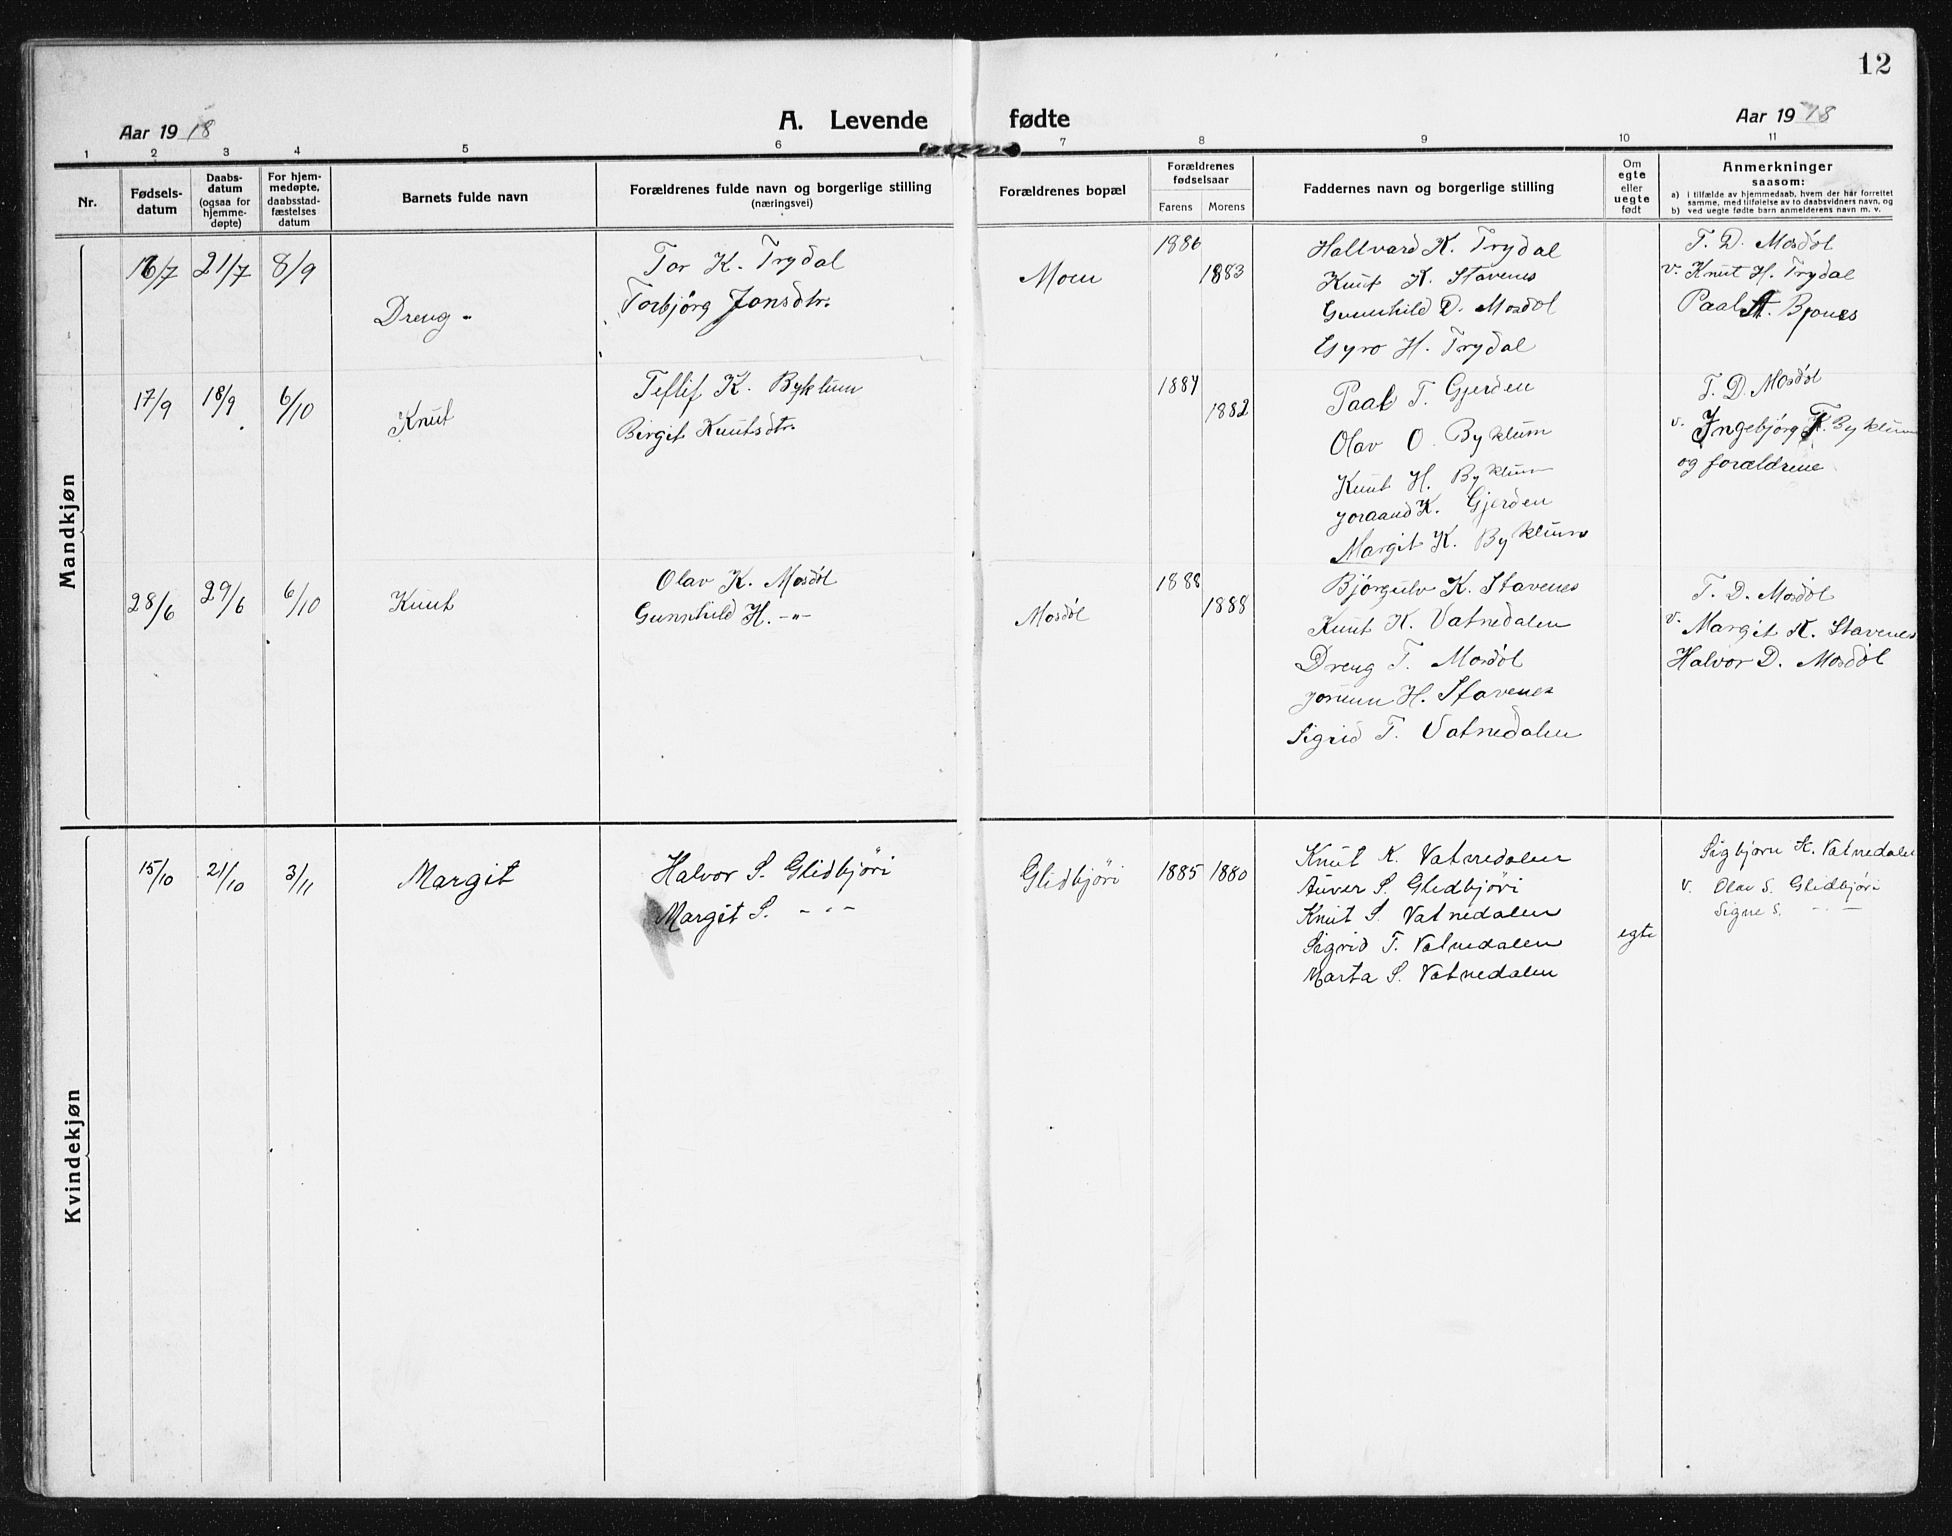 12
Aar 1918
A. Levende fødte
Aar 1918
1 2 3 4 5 6 7 8 9 10 11
Nr.
Fødsels-
datum
Daabs-
datum
(ogsaa for
hjemme-
døpte)
For hjem-
medøpte,
daabsstad-
fæstelses
datum
Barnets fulde navn
Forældrenes fulde navn og borgerlige stilling
(næringsvei)
Forældrenes bopæl
Forældrenes
fødselsaar
Farens Morens
Faddernes navn og borgerlige stilling
Om
egte
eller
uegte
født
Anmerkninger
saasom:
a) i tilfælde av hjemmedaab, hvem der har forrettet
samme, med tilføielse av to daabsvidners navn, og
b) ved uegte fødte barn anmelderens navn m. v.
Mandkjøn
16/7 21/7 8/9
Dreng
Tor K. Trydal
Torbjørg Jonsdtr.
Moen
1886
1883
Hallvard K. Trydal
Knut K. Stavenes
Gunnhild D. Mosdøl
Gyro H. Trydal
T. D. Mosdøl
v. Knut H. Trydal
Paal A. Bjones
17/9 18/9 6/10
Knut
Teflif K. Byklum
Birgit Knutsdtr.
1887
1882
Paal T. Gjerden
Olav O. Byklum
Knut H. Byklum
Joraand K. Gjerden
Margit K. Byklum
T. D. Mosdøl
v. Ingebjørg T. Byklum
og forældrene
28/6 29/6 6/10
Knut
Olav K. Mosdøl
Gunnhild H. -"-
Mosdøl
1888
1888
Bjørgulv K. Stavenes
Knut K. Vatnedalen
Dreng T. Mosdøl
Jorunn H. Stavenes
Sigrid T. Vatnedalen
T. D. Mosdøl
v. Margit K. Stavenes
Halvor D. Mosdøl
Kvindekjøn
15/10 21/10 3/11
Margit
Halvor S. Glidbjöri
Margit S. - " -
Glidbjöri
1885 1880
Knut K. Vatnedalen
Anver S. Glidbjöri
Knut S. Vatnedalen
Sigrid T. Vatnedalen
Marta S. Vatnedalen
egte
Sigbjørn K. Vatnedalen
v. Olav S. Glidbjöri
Signe S. - " -